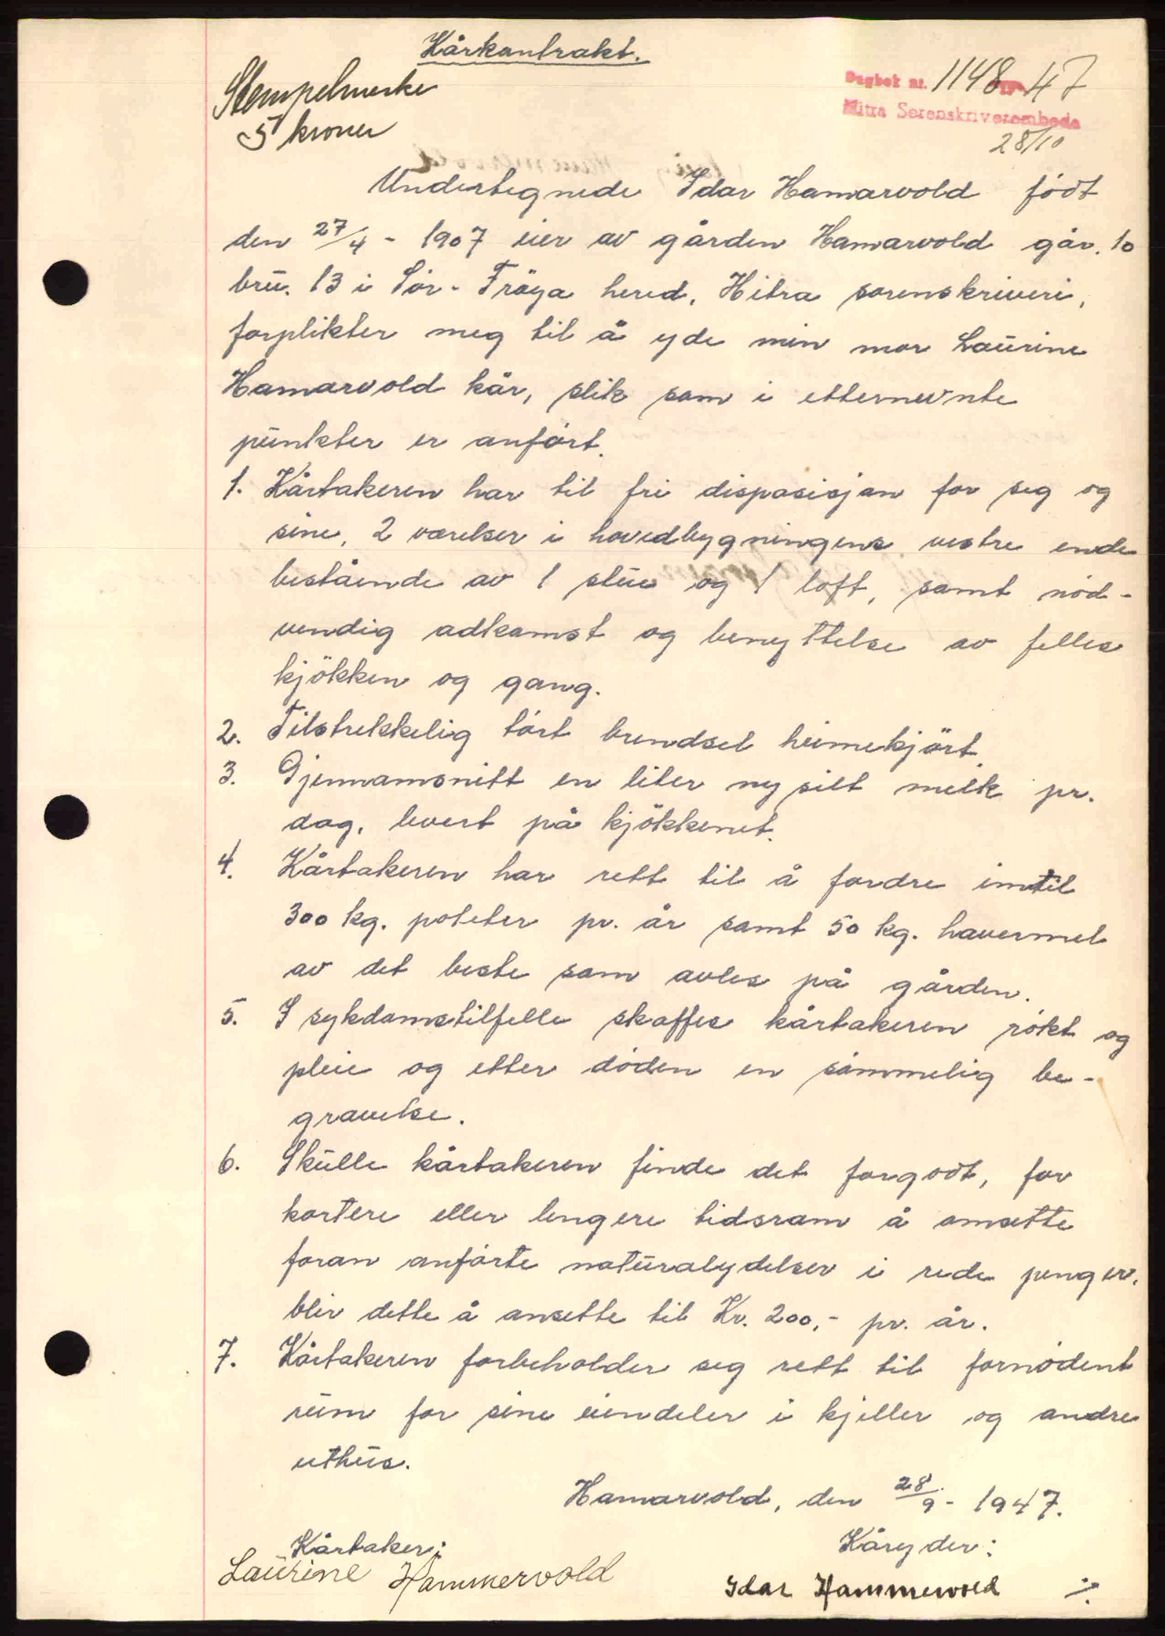 Kårkontrakt.
Stempelmerke
5 kroner
Dagbok nr. 1148 19 47
Hitra Sorenskriverembede
28/10
Undertegnede Idar Hamarvold födt
den 27/4 - 1907 eier av gården Hamarvold går. 10
bru. 13 i Sör-Fröya hered, Hitra sorenskriveri,
forplikter meg til å yde min mor Laurine
Hamarvold kår, slik som i etternevnte
punkter er anfört.
1. Kårtakeren har til fri disposisjon for seg og
sine, 2 værelser i hovedbygningens vestre ende
bestående av 1 stue og 1 loft, samt nöd-
vendig adkomst og benyttelse av felles
kjökken og gang.
2. Tilstrekkelig tört brendsel heimekjört.
3. Gjennomsnitt en liter nysilt melk pr.
dag, levert på kjökkenet.
4. Kårtakeren har rett til å fordre inntil
300 kg. poteter pr. år samt 50 kg. havermel
av det beste som avles på gården.
5. I sykdomstilfelle skaffes kårtakeren rökt og
pleie og etter döden en sömmelig be-
gravelse.
6. Skulle kårtakeren finde det forgodt, for
kortere eller lengere tidsrom å omsette
foran anförte naturalydelser i rede penger,
blir dette å ansette til Kr. 200,- pr. år.
7. Kårtakeren forbeholder seg rett til fornödent
rum for sine eiendeler i kjeller og andre
uthus.
Hamarvold, den 28/9 - 1947.
Kårtaker: Kåryder:
Laurine Hammervold Idar Hammervold ./.